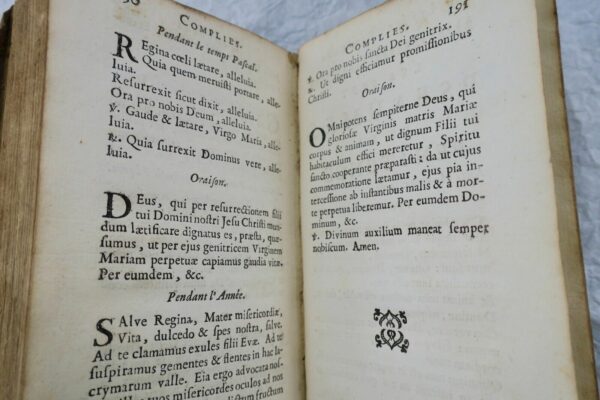 COMPLIES.
Pendant le temps Pascal.
REgina cœli lætare, alleluia.
Quia quem meruisti portare, alle-
luia.
Resurrexit sicut dixit, alleluia.
Ora pro nobis Deum, alleluia.
℣. Gaude & lætare, Virgo Maria, alle-
luia.
℟. Quia surrexit Dominus vere, alle-
luia.
Oraison.
DEus, qui per resurrectionem filii
tui Domini nostri Jesu Christi mun-
dum lætificare dignatus es, præsta, quæ-
sumus, ut per ejus genitricem Virginem
Mariam perpetuæ capiamus gaudia vitæ.
Per eumdem, &c.
Pendant l'Année.
SAlve Regina, Mater misericordiæ,
Vita, dulcedo & spes nostra, salve.
Ad te clamamus exules filii Evæ. Ad te
suspiramus gementes & flentes in hac la-
crymarum valle. Eia ergo advocata nos-
misericordes oculos ad nos
fructum
COMPLIES. 191
℣. Ora pro nobis sancta Dei genitrix.
℟. Ut digni efficiamur promissionibus
Christi.
Oraison.
OMnipotens sempiterne Deus, qui
gloriosæ Virginis matris Mariæ
corpus & animam, ut dignum Filii tui
habitaculum effici mereretur, Spiritu
sancto cooperante præparasti; da ut cujus
commemoratione lætamur, ejus pia in-
tercessione ab instantibus malis & à mor-
te perpetua liberemur. Per eumdem Do-
minum, &c.
℣. Divinum auxilium maneat semper
nobiscum. Amen.